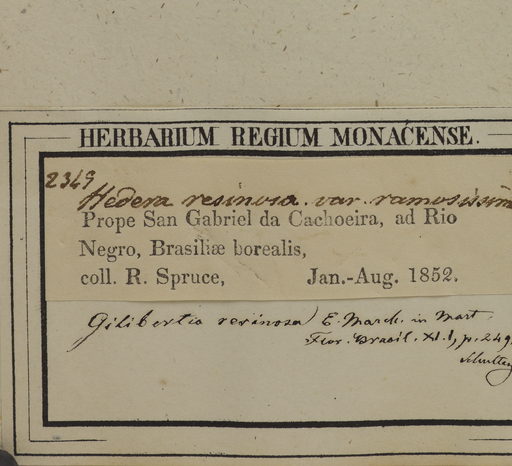 HERBARIUM REGIUM MONACENSE.
2349
Hedera resinosa var. ramosissim
Prope San Gabriel da Cachoeira, ad Rio
Negro, Brasiliæ borealis,
coll. R. Spruce, Jan.-Aug. 1852.
Gilibertia resinosa E. March. in Mart.
Flor. Brasil. XI. 1, p. 249.